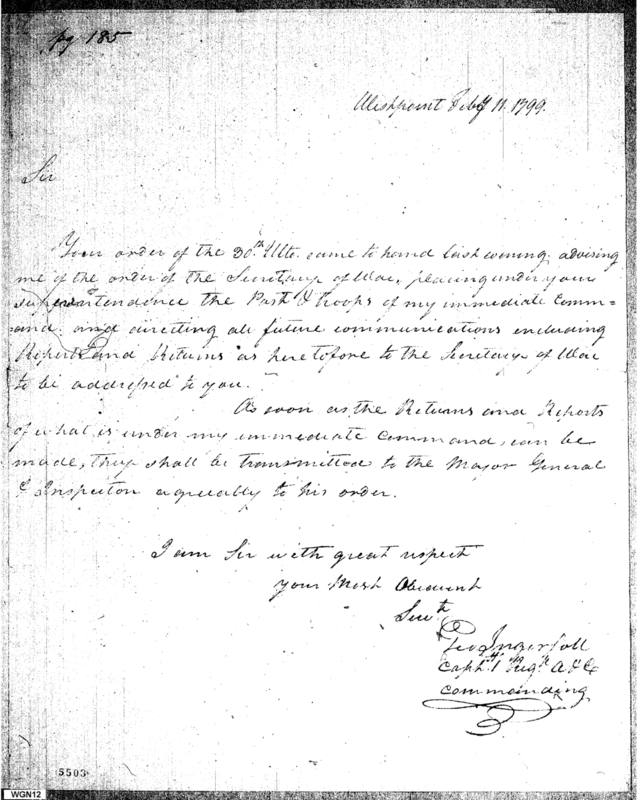 pg 185
Westpoint Feby 11. 1799.
Sir
Your order of the 30th Ulto. came to hand last evening, advising
me of the order of the Secretary of War, placing under your
superintendence the Post & troops of my immediate Comm=
and. and directing all future communications including
Reports and Returns as heretofore to the Secretary of War
to be addressed to you.
As soon as the Returns and Reports
of what is under my immediate Command, can be
made, they shall be transmitted to the Major General
& Inspector agreeably to his order.
I am Sir with great respect
your Most Obedient
Servt
Geo Ingersoll
Capt. 1 Regt A & E
commanding
5503
WGN12